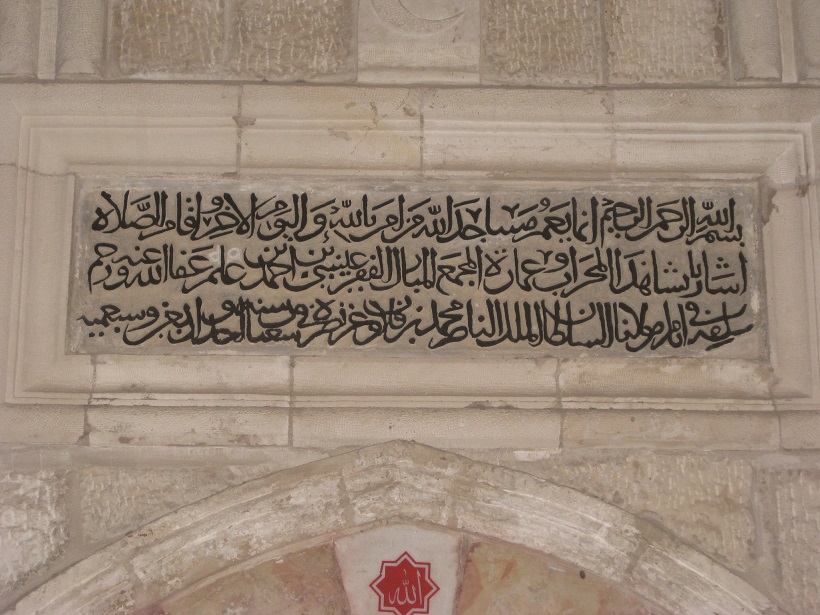 بسم الله الرحمن الرحيم انما يعمر مساجد الله من امن بالله واليوم الاخر واقام الصلاة
انشاء هذا المحراب وعمارة المجمع المبارك الفقير عيسى بن احمد بن غانم عفا الله عنه ورحم
سلفه في ايام مولانا السلطان الملك الناصر محمد بن قلاوون عز نصره في سنة وسبعمية
الله